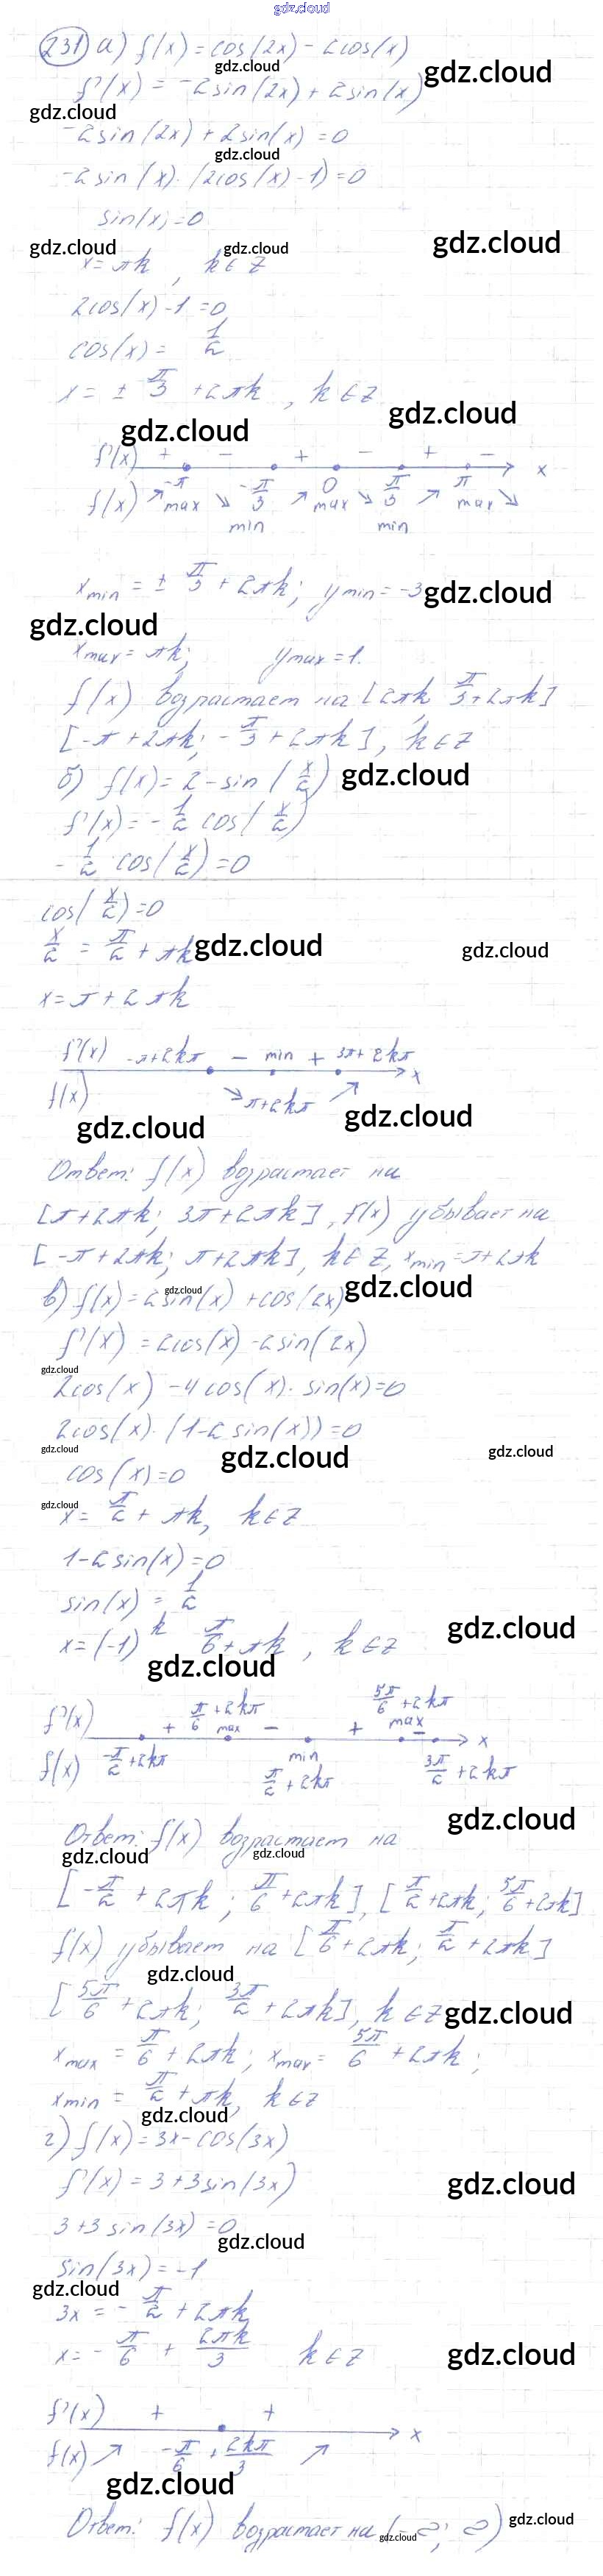 gdz.cloud
231) а) f(x) = cos(2x) - 2cos(x)
gdz.cloud gdz.cloud
f'(x) = -2sin(2x) + 2sin(x)
gdz.cloud
-2sin(2x) + 2sin(x) = 0
gdz.cloud
-2sin(x)·(2cos(x)-1)=0
sin(x)=0
gdz.cloud gdz.cloud gdz.cloud
x = πk, k∈Z
2cos(x)-1=0
cos(x) = 1/2
x = ± π/3 + 2πk, k∈Z
gdz.cloud
gdz.cloud
f'(x) + - + - + - x
f(x) ↗ -π max ↘ -π/3 min ↗ 0 max ↘ π/3 min ↗ π max ↘
x min = ± π/3 + 2πk; y min = -3
gdz.cloud
gdz.cloud
x max = πk; y max = 1.
f(x) возрастает на [2πk; π/3+2πk]
[-π+2πk; -π/3+2πk], k∈Z
б) f(x) = 2 - sin(x/2)
gdz.cloud
f'(x) = -1/2 cos(x/2)
-1/2 cos(x/2)=0
cos(x/2)=0
x/2 = π/2 + πk
gdz.cloud gdz.cloud
x = π + 2πk
f'(x) -π+2kπ - min + 3π+2kπ x
f(x) ↘ π+2kπ ↗
gdz.cloud gdz.cloud
Ответ: f(x) возрастает на
[π+2πk; 3π+2πk], f(x) убывает на
[-π+2πk; π+2πk], k∈Z, x min = π+2πk
gdz.cloud gdz.cloud
в) f(x) = 2sin(x) + cos(2x)
f'(x) = 2cos(x) - 2sin(2x)
gdz.cloud
2cos(x) - 4cos(x)·sin(x)=0
2cos(x)·(1-2sin(x))=0
gdz.cloud gdz.cloud gdz.cloud
cos(x)=0
gdz.cloud
x = π/2 + πk, k∈Z
1-2sin(x)=0
sin(x) = 1/2
x = (-1)^k π/6 + πk, k∈Z
gdz.cloud
gdz.cloud
f'(x) + π/6+2kπ max - + 5π/6+2kπ max - x
f(x) -π/2+2kπ min π/2+2kπ 3π/2+2kπ
gdz.cloud
Ответ: f(x) возрастает на
gdz.cloud gdz.cloud
[-π/2+2πk; π/6+2πk], [π/2+2πk; 5π/6+2πk]
f(x) убывает на [π/6+2πk; π/2+2πk]
gdz.cloud
[5π/6+2πk; 3π/2+2πk], k∈Z
gdz.cloud
x max = π/6+2πk; x max = 5π/6+2πk;
x min = π/2+πk, k∈Z
gdz.cloud
г) f(x) = 3x - cos(3x)
f'(x) = 3+3sin(3x)
gdz.cloud
3+3sin(3x)=0
gdz.cloud
sin(3x)=-1
gdz.cloud
3x = -π/2 + 2πk
x = -π/6 + 2πk/3 k∈Z
gdz.cloud
f'(x) + + x
f(x) ↗ -π/6 + 2kπ/3 ↗
gdz.cloud
Ответ: f(x) возрастает на (-∞; ∞)
gdz.cloud